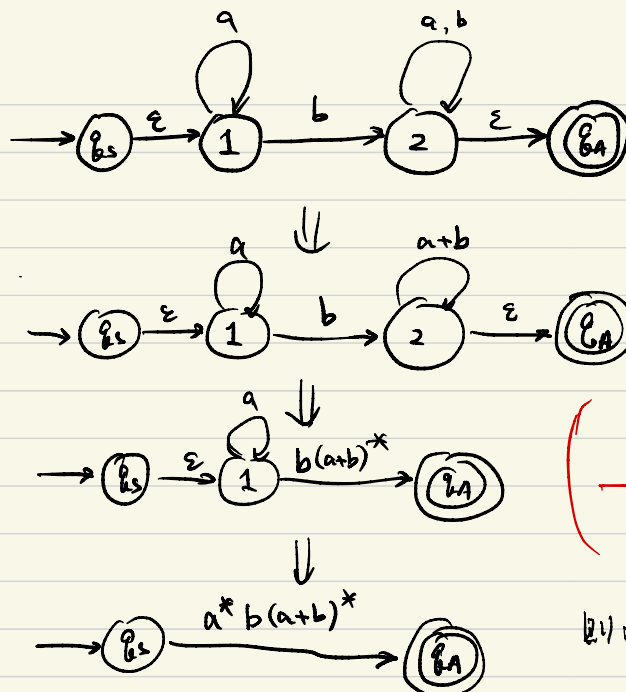 a a, b
qs ε 1 b 2 ε qA
⇓
a a+b
qs ε 1 b 2 ε qA
⇓
a
qs ε 1 b(a+b)* qA
⇓
qs a* b(a+b)* qA